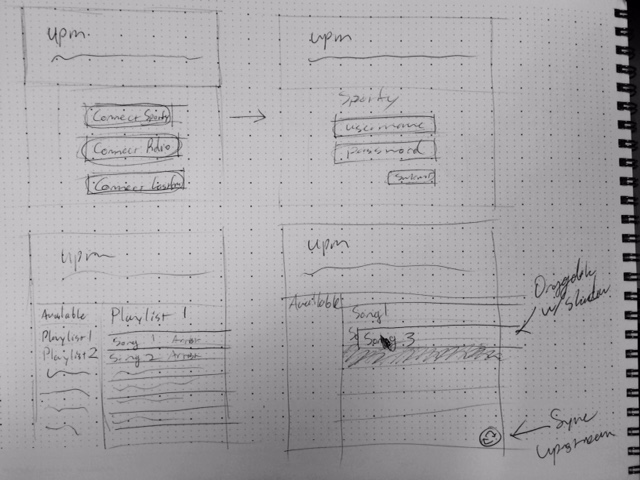 upm
Connect Spotify
Connect Rdio
Connect
upm
Spotify
username
password
Submit
upm
Available
Playlist 1
Playlist 2
Playlist 1
Song 1 Artist
Song 2 Artist
upm
Available
Song 1
So
Song 3
w/
Sync
upstream